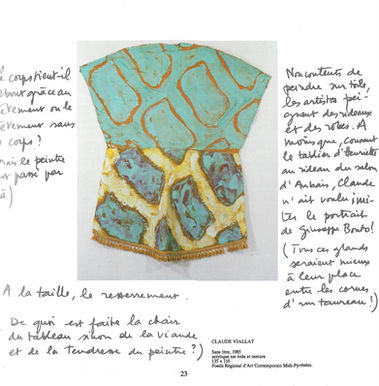 le corps tient-il
debout grâce au
vêtement ou le
vêtement sans
corps ?
mais le peintre
est passé par
là)
Non contents de
peindre sur toile,
les artistes pei-
gnent des rideaux
et des robes. A
moins que, cousant
le tablier d'Henriette
au rideau du salon
d'Aubais, Claude
n'ait voulu imi-
ter le portrait
de Giuseppe Bonto!
(Tous ces grands
seraient mieux
à leur place
entre les cornes
d'un taureau!)
A la taille, le resserrement.
De quoi est faite la chair
du tableau sinon de la viande
et de la tendresse du peintre?)
CLAUDE VIALLAT
Sans titre, 1985
acrylique sur toile et tenture
135 x 110
Fonds Régional d'Art Contemporain Midi-Pyrénées.
23